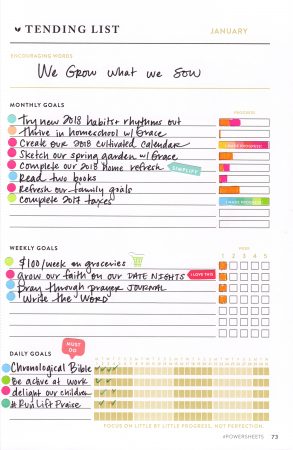 TENDING LIST JANUARY
ENCOURAGING WORDS
We Grow what we sow
MONTHLY GOALS PROGRESS
try new 2018 habits + rhythms out
thrive in homeschool w/Grace
Create our 2018 cultivated calendar I MADE PROGRESS!
Sketch our spring garden w/Grace
Complete our 2018 home refresh SIMPLIFY
Read two books
Refresh our family goals
complete 2017 taxes I MADE PROGRESS!
WEEKLY GOALS WEEK
1 2 3 4 5
$100/week on groceries
grow our faith on our DATE NIGHTS I LOVE THIS
pray through prayer JOURNAL
Write the WORD
MUST DO
DAILY GOALS
Chronological Bible
Be active at work
delight our children
#Run Lift Praise
FOCUS ON LITTLE BY LITTLE PROGRESS, NOT PERFECTION.
#POWERSHEETS 73